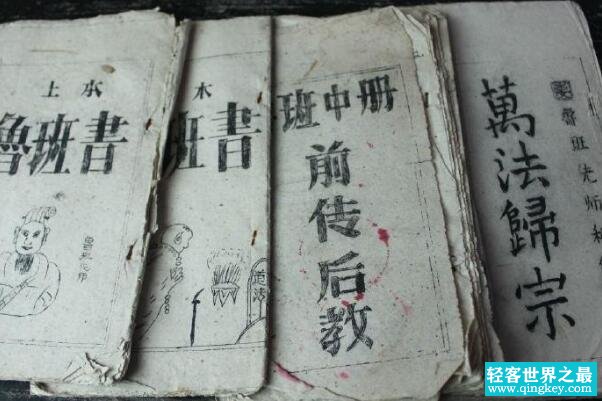 上本
魯班書
班書
道法
班中册
前传后教
萬法歸宗
魯班先师
轻客世界之最
www.qingkey.com